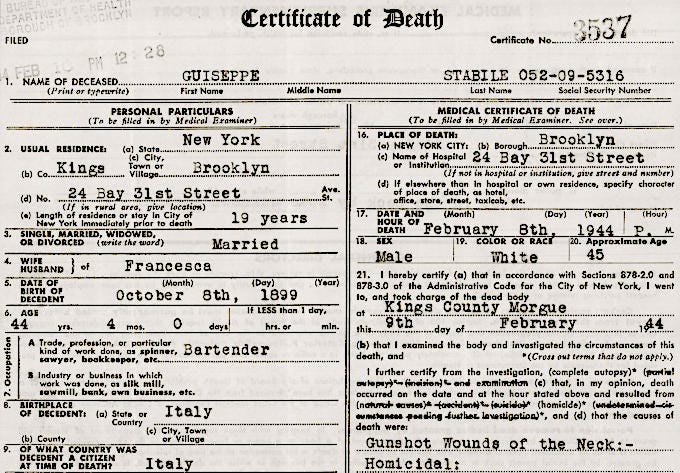 BUREAU OF
DEPARTMENT OF HEALTH
BOROUGH OF BROOKLYN
Certificate of Death
FILED
Certificate No. 3537
FEB PM 12:28
1. NAME OF DECEASED GUISEPPE STABILE 052-09-5316
(Print or typewrite) First Name Middle Name Last Name Social Security Number
PERSONAL PARTICULARS
(To be filled in by Medical Examiner)
2. USUAL RESIDENCE: (a) State New York
(c) City,
(b) Co. Kings Town or Village Brooklyn
(d) No. 24 Bay 31st Street Ave. St.
(If in rural area, give location)
(e) Length of residence or stay in City of
New York immediately prior to death 19 years
3. SINGLE, MARRIED, WIDOWED,
OR DIVORCED (write the word) Married
4. WIFE
HUSBAND } of Francesca
5. DATE OF (Month) (Day) (Year)
BIRTH OF
DECEDENT October 8th, 1899
6. AGE If LESS than 1 day,
44 yrs. 4 mos. 0 days hrs. or min.
7. Occupation
A Trade, profession, or particular
kind of work done, as spinner, Bartender
sawyer, bookkeeper, etc.
B Industry or business in which
work was done, as silk mill,
sawmill, bank, own business, etc.
8. BIRTHPLACE
OF DECEDENT: (a) State or Country Italy
(c) City, Town
(b) County or Village
9. OF WHAT COUNTRY WAS
DECEDENT A CITIZEN
AT TIME OF DEATH? Italy
MEDICAL CERTIFICATE OF DEATH
(To be filled in by Medical Examiner. See over.)
16. PLACE OF DEATH:
(a) NEW YORK CITY: (b) Borough Brooklyn
(c) Name of Hospital
or Institution 24 Bay 31st Street
(If not in hospital or institution, give street and number)
(d) If elsewhere than in hospital or own residence, specify character
of place of death, as hotel,
office, store, street, taxicab, etc.
17. DATE AND (Month) (Day) (Year) (Hour)
HOUR OF
DEATH February 8th, 1944 P. M.
18. SEX 19. COLOR OR RACE 20. Approximate Age
Male White 45
21. I hereby certify (a) that in accordance with Sections 878-2.0 and
878-3.0 of the Administrative Code for the City of New York, I went
to, and took charge of the dead body
at Kings County Morgue
this 9th day of February 1944
(b) that I examined the body and investigated the circumstances of this
death, and *(Cross out terms that do not apply.)
I further certify from the investigation, (complete autopsy)* (partial
autopsy)* (incision)* and examination (c) that, in my opinion, death
occurred on the date and at the hour stated above and resulted from
(natural causes)* (accident)* (suicide)* (homicide)* (undetermined cir-
cumstances pending further investigation)*, and (d) that the causes of
death were:
Gunshot Wounds of the Neck:-
Homicidal: